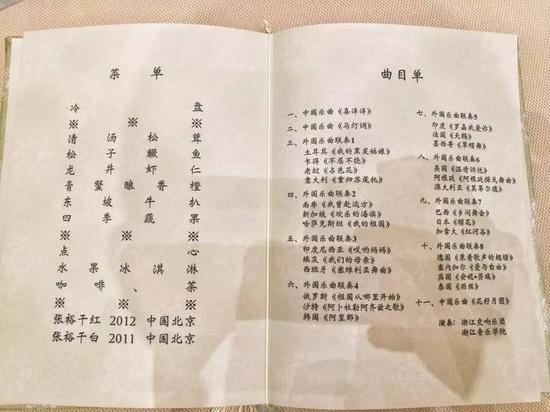 菜 单
冷 盘
※ ※ ※
清 汤 松 茸
松 子 鳜 鱼
龙 井 虾 仁
膏 蟹 酿 香 橙
东 坡 牛 扒
四 季 蔬 果
※ ※ ※
点 心
水 果 冰 淇 淋
咖 啡 、 茶
※ ※ ※
张裕干红 2012 中国北京
张裕干白 2011 中国北京
曲目单
一、中国乐曲《喜洋洋》
二、中国乐曲《马灯调》
三、外国乐曲联奏1
土耳其《我的黑发姑娘》
乍得《不屈不挠》
老挝《占芭花》
意大利《重归苏莲托》
四、外国乐曲联奏2
南非《我曾赴远方》
新加坡《欢乐的海滨》
哈萨克斯坦《我的祖国》
五、外国乐曲联奏3
印度尼西亚《哎哟妈妈》
埃及《我们的母亲》
西班牙《塞维利亚舞曲》
六、外国乐曲联奏4
俄罗斯《祖国从哪里开始》
沙特《阿卜杜勒阿齐兹之歌》
韩国《阿里郎》
七、外国乐曲联奏5
印度《罗摩我爱你》
法国《天鹅》
墨西哥《草帽舞》
八、外国乐曲联奏6
美国《温情诉说》
阿根廷《阿根廷探戈舞曲》
澳大利亚《莫第尔德》
九、外国乐曲联奏7
巴西《乡间舞会》
日本《樱花》
加拿大《红河谷》
十、外国乐曲联奏8
德国《乘着歌声的翅膀》
塞内加尔《爱与自由》
英国《安妮•劳瑞》
泰国《雨丝》
十一、中国乐曲《花好月圆》
演奏：浙江交响乐团
浙江音乐学院